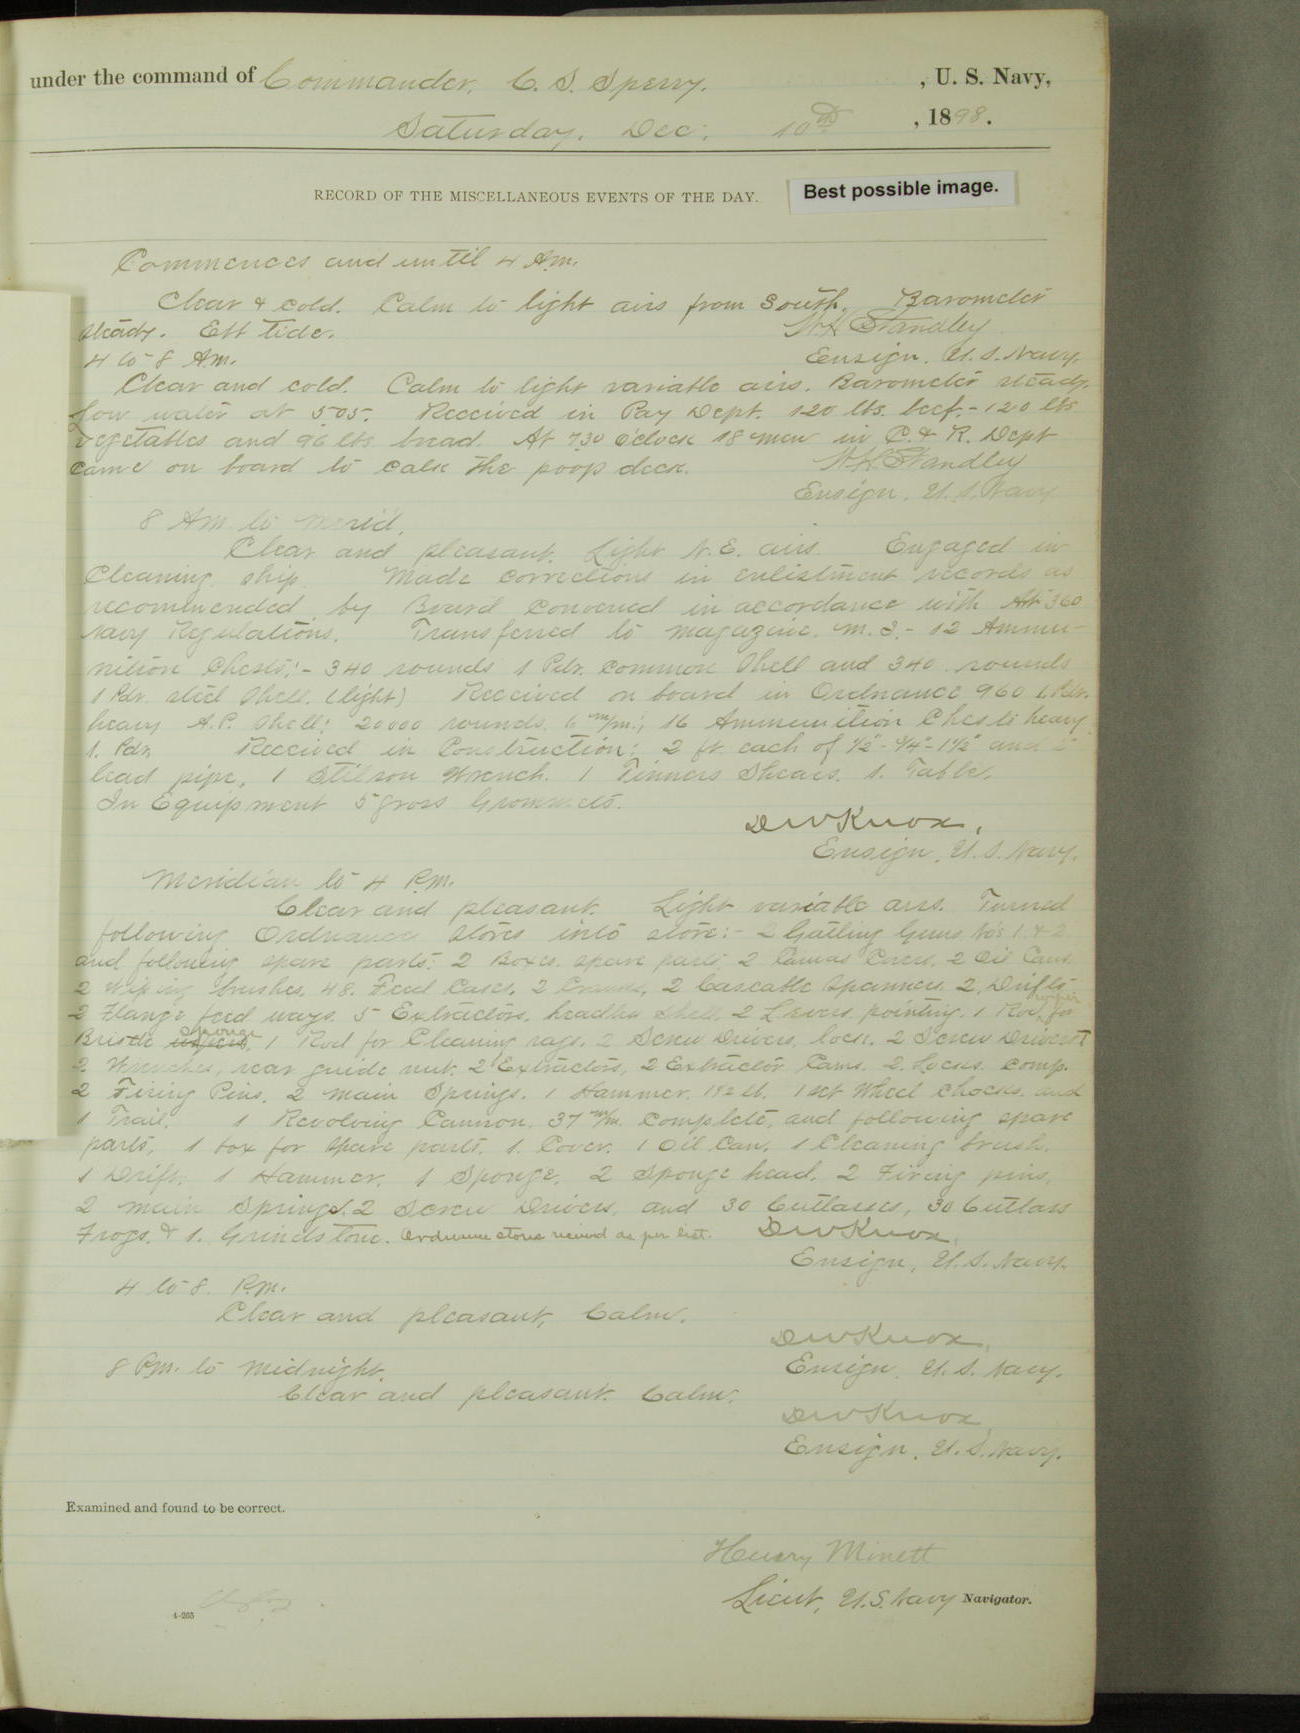 under the command of Commander, C. S. Sperry. , U. S. Navy,
Saturday. Dec. 10th , 1898.
RECORD OF THE MISCELLANEOUS EVENTS OF THE DAY.
Best possible image.
Commences and until 4 A.m.
Clear & cold. Calm to light airs from South. Barometer
steady. Ebb tide. W. H. Standley
4 to 8 A.m. Ensign. U. S. Navy.
Clear and cold. Calm to light variable airs. Barometer steady.
Low water at 505. Received in Pay Dept. 120 lbs. beef. - 120 lbs.
vegetables and 96 lbs. bread. At 7.30 o'clock 18 men in C. & R. Dept
came on board to calk the poop deck. W. H. Standley
Ensign. U. S. Navy
8 A.m. to merid.
Clear and pleasant. Light N.E. airs. Engaged in
Cleaning ship. Made corrections in enlistment records as
recommended by Board convened in accordance with Art 360
Navy Regulations. Transferred to magazine, M. I. - 12 Ammu-
nition Chests: - 340 rounds 1 Pdr. common shell and 340 rounds
1 Pdr. steel shell. (light) Received on board in Ordnance 960 1. Pdr.
heavy A.P. shell; 20000 rounds. 6 m/m; 16 Ammunition Chests heavy
1. Pdr. Received in Construction: 2 ft. each of 1/2" - 3/4" - 1 1/2" and 2"
lead pipe, 1 Stilson Wrench. 1 Tinners Shears. 1. Table.
In Equipment 5 gross Grommets.
D W Knox,
Ensign, U. S. Navy.
Meridian to 4 P.m.
Clear and pleasant. Light variable airs. Turned
following Ordnance stores into store: - 2 Gatling Guns Nos. 1. & 2
and following spare parts: 2 Boxes. spare parts, 2 Canvas Covers. 2 Oil Cans.
2 Wiping brushes. 48. Feed Cases. 2 Cranks, 2 Cascable Spanners. 2. Drifts.
2 Flange feed ways. 5 Extractors, headless shell. 2 Levers pointing. 1 Rod for
wiper
Bristle sponge, 1 Rod for Cleaning rags. 2 Screw Drivers, lock. 2 Screw Drivers T
2. Wrenches, rear guide nut. 2 Extractors, 2 Extractor Cams. 2. Locks. comp.
2 Firing Pins. 2 Main Springs. 1 Hammer. 1 1/2 lb. 1 set Wheel chocks. and
1 Trail. 1 Revolving Cannon. 37 m/m. complete, and following spare
parts, 1 box for spare parts. 1. Cover. 1 Oil Can. 1 Cleaning brush.
1 Drift. 1 Hammer. 1 Sponge. 2 Sponge head. 2 Firing pins.
2 Main Springs. 2 Screw Drivers, and 30 Cutlasses, 30 Cutlass
Frogs. & 1. Grindstone. Ordnance stores received as per list. D W Knox,
Ensign, U. S. Navy.
4 to 8. P.m.
Clear and pleasant, Calm.
D W Knox,
8 P.m. to midnight. Ensign. U. S. Navy.
Clear and pleasant. Calm.
D W Knox,
Ensign. U. S. Navy.
Examined and found to be correct.
Henry Minett
Lieut, U. S. Navy Navigator.
4-205